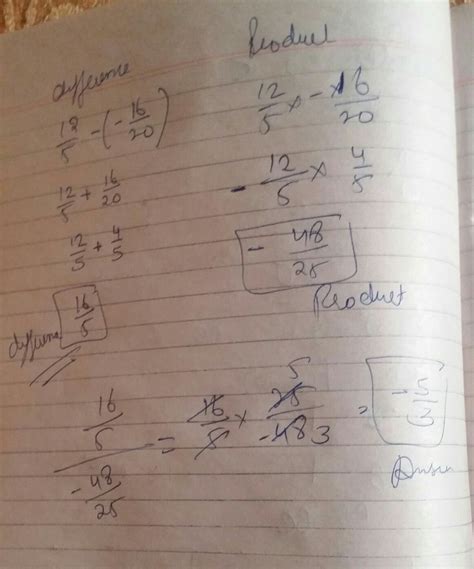 difference
12/5 - (-16/20)
12/5 + 16/20
12/5 + 4/5
difference 16/5
Product
12/5 × -16/20
- 12/5 × 4/5
- 48/25
Product
16/5 / -48/25 = 16/5 × 25 5/-48 3 = -5/3
Answer